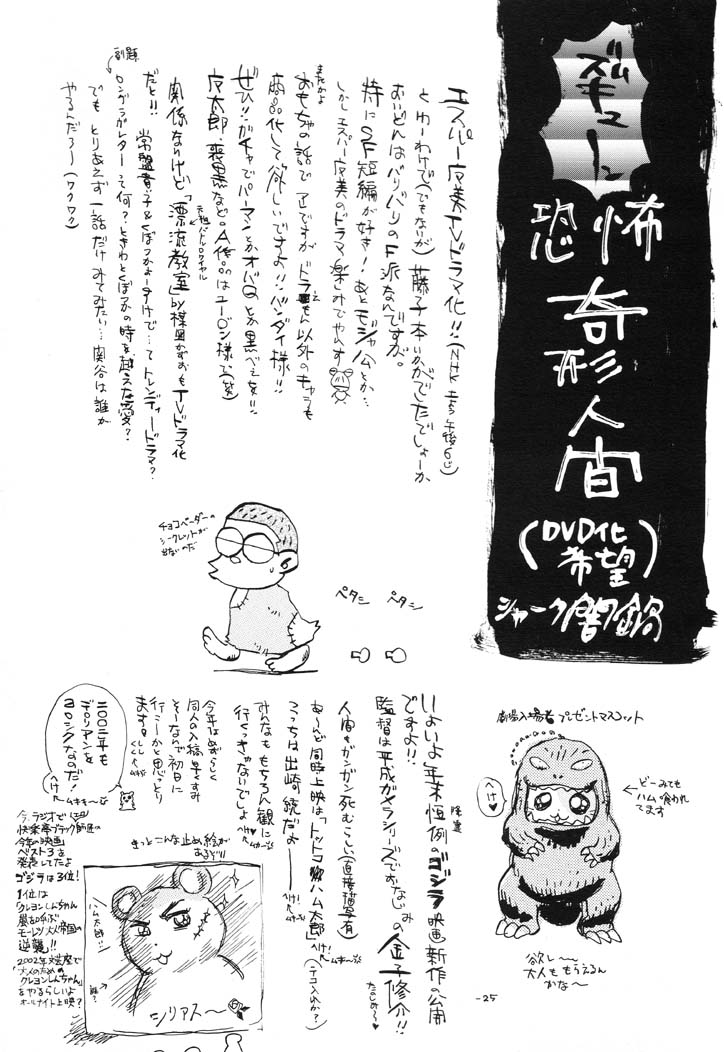 ズムズギューン
恐怖
奇形
人間
(DVD化
希望)
シャーク闇鍋
エスパー魔美TVドラマ化!!(NHK 土5 午後6じ)
とゆーわけで(でもないが)藤子本いかがでしたでしょーか
おいどんはバリバリのF派なんですが。
特にSF短編が好き!あとモジャ公とか…
しかしエスパー魔美のドラマ楽しみでやんす
またかよ
おもちゃの話で
ドラえもん以外のキャラも
商品化して欲しいですよ!!バンダイ様!!
ぜひ!!ガチャでパーマンとかオバQとか黒べえを!!
魔太郎、喪黒など。A作品はユージン様で(笑)
元祖バトルロワイヤル
関係ないけど「漂流教室」by楳図かずおもTVドラマ化
だと!!常盤貴子&くぼづかよーすけで…てトレンディードラマ?
副題
ロングラブレターって何?ときわとくぼづかの時を越えた愛?
でもとりあえず一話だけみてみたい…関谷は誰が
やるんだろー(ワクワク)
チョコベーダーの
シークレットが
出ないのだ
ペタシ
ペタシ
劇場入場者プレゼントマスコット
へけ♡
←どーみても
ハム喰われ
てます
欲し〜
大人ももらえるん
かな〜
いよいよ年末恒例のゴジラ映画新作の公開
ですよ!!
監督は平成ガメラシリーズでおなじみの金子修介!!
たのしみ〜♡
人間もガンガン死むらしい(直接描写有)
あーんど同時上映は「とっとこハム太郎」
(テコ入れか?)
こっちは出崎 統だよーー
へけ!
みんなももちろん観に
行くっきゃないでしょ
今年はめずらしく
同人の入稿早くすみ
そーなんで初日に
行こーかと思っとり
ます。
二〇〇二年も
デロリアンを
ヨロシクなのだ!
へけ
今、ラジオで
快楽亭ブラック師匠の
今年の映画
ベスト3を
発表してたよ
ゴジラは3位!
1位は
クレヨンしんちゃん
嵐を呼ぶ
モーレツ大人帝国の
逆襲!!
2002年文芸座で
「大人のための
クレヨンしんちゃん」
をやるらしいよ
オールナイト上映?
きっとこんな止め絵が
あるぞ!!
ハム太郎…
誰?
シリアス〜
-25